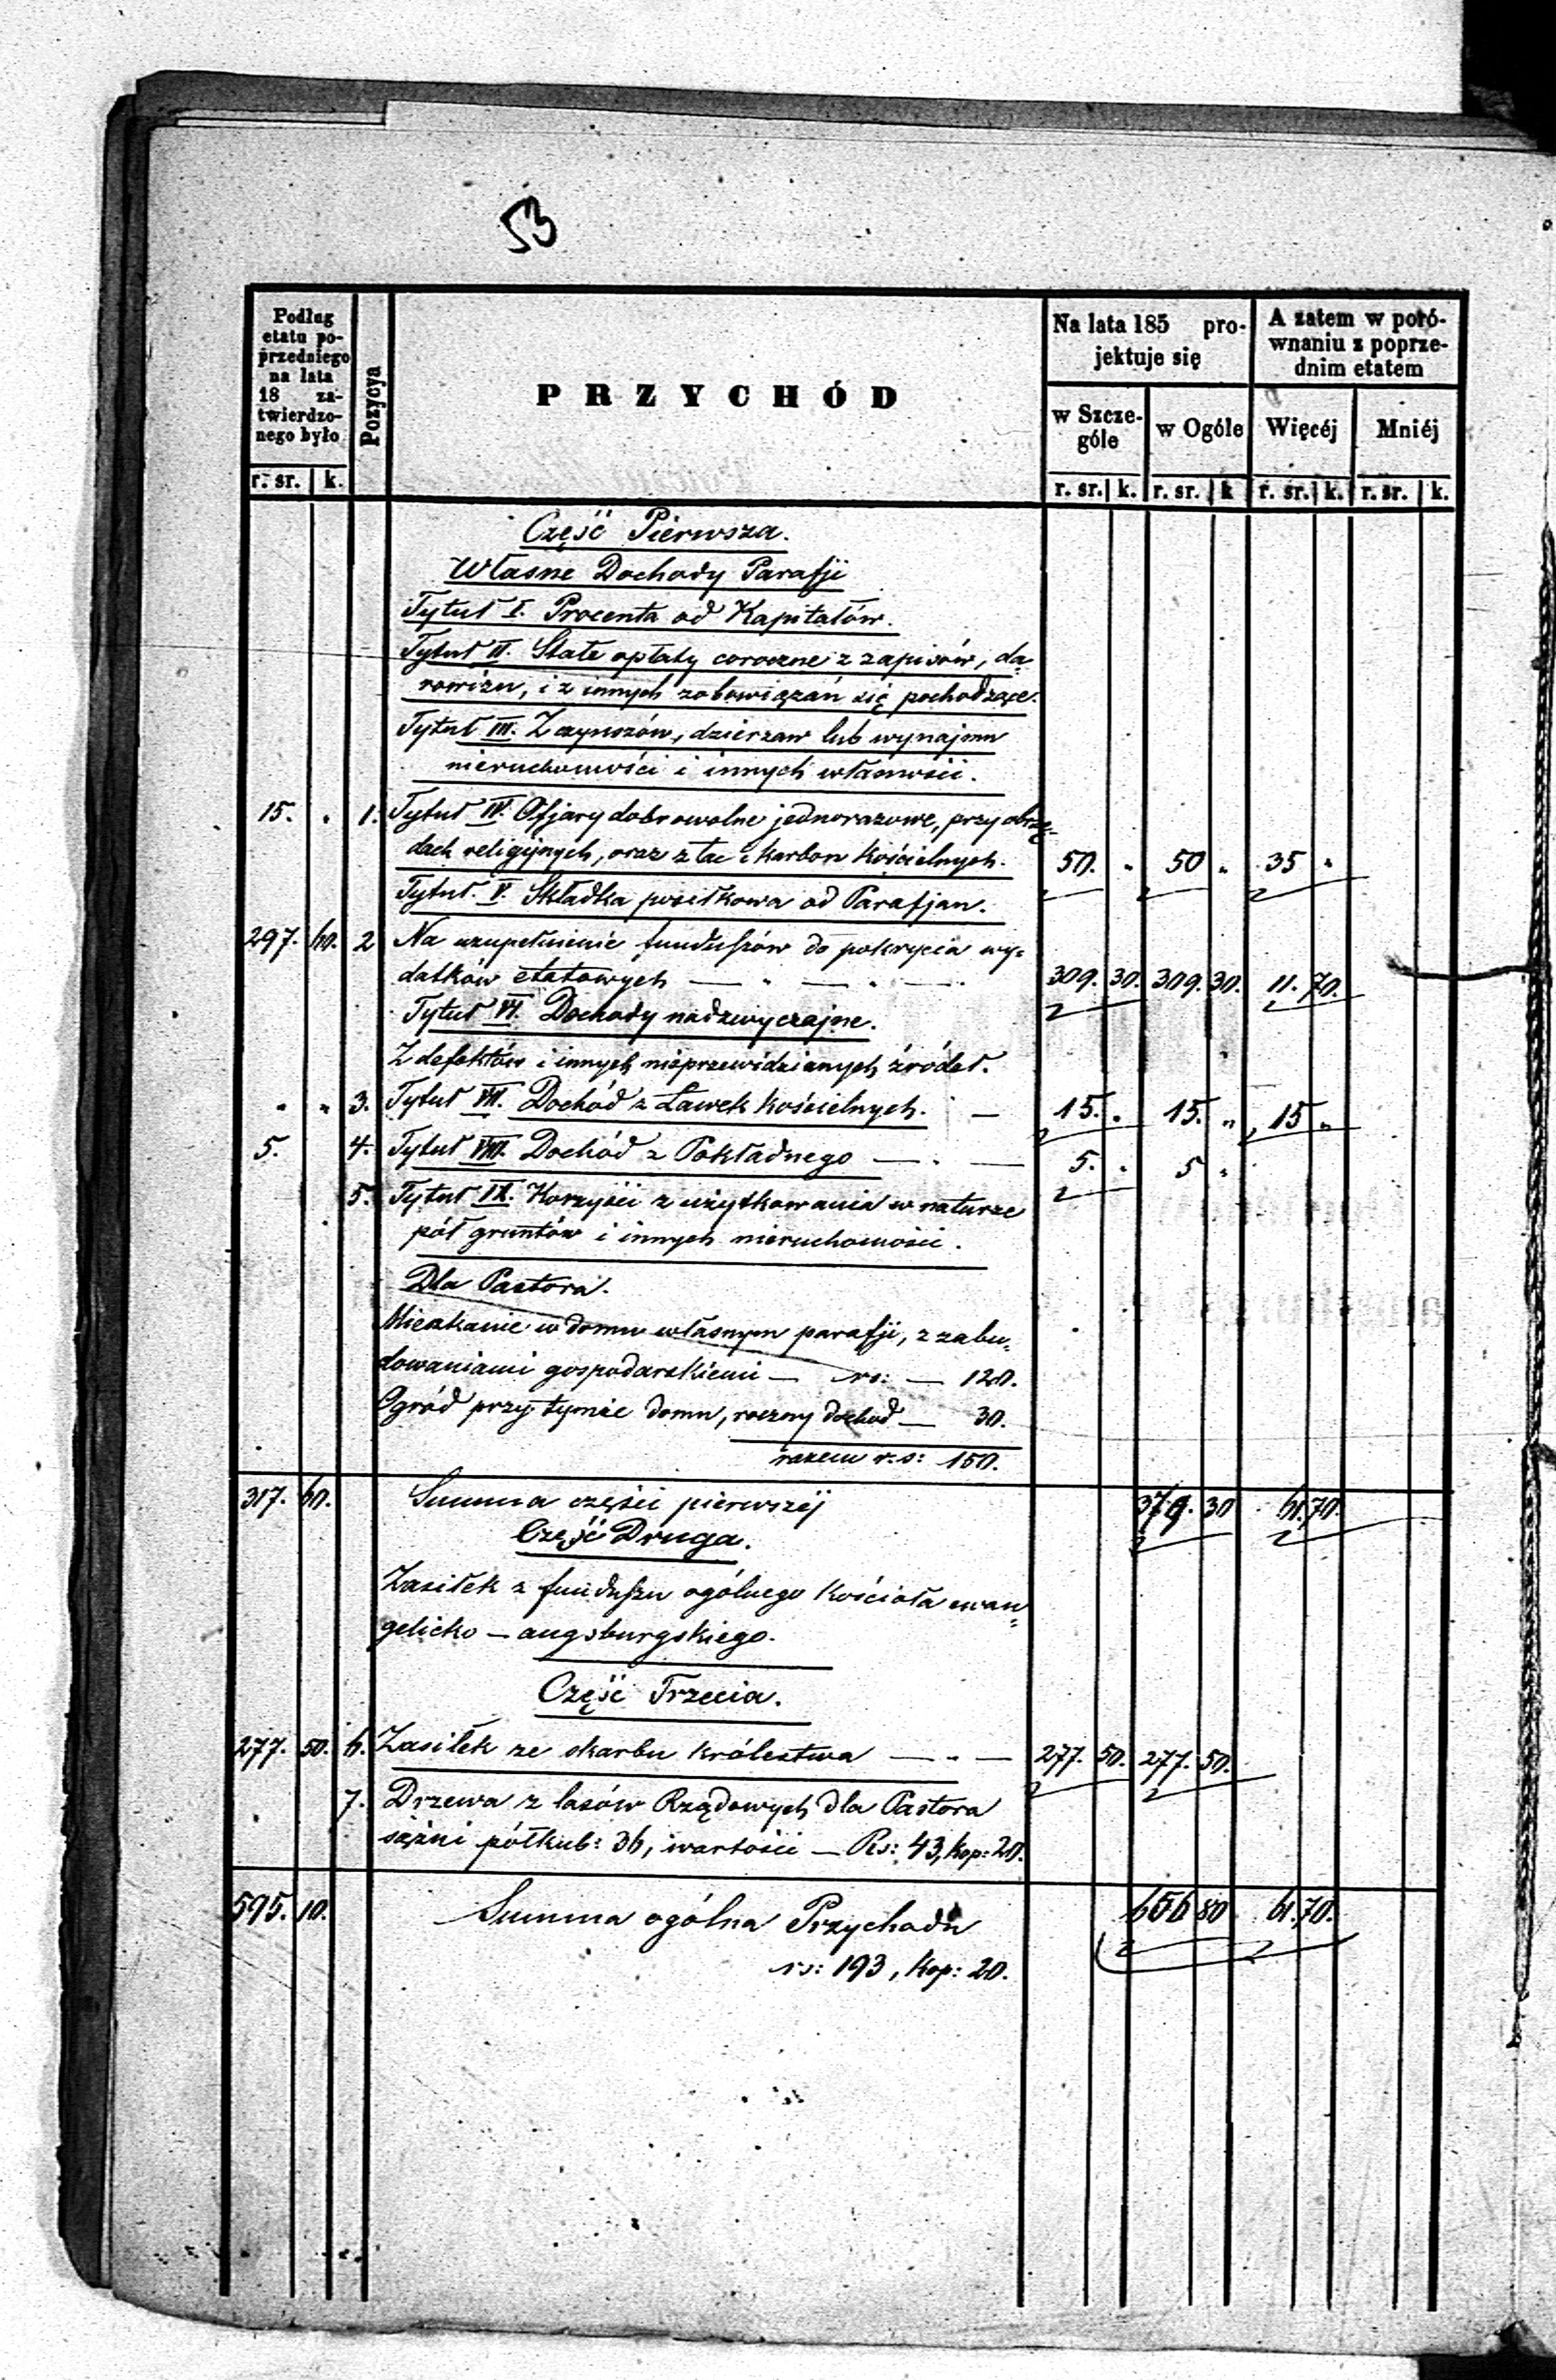 53
Podług etatu poprzedniego na lata 18 zatwierdzonego było
Pozycya
PRZYCHÓD
Na lata 185 projektuje się
A zatem w porównaniu z poprzednim etatem
w Szczególe
w Ogóle
Więcéj
Mniéj
r. sr. k. r. sr. k. r. sr. k r. sr. k. r. sr. k.
Część Pierwsza.
Własne Dochody Parafji
Tytuł I. Procenta od Kapitałów.
Tytuł II. Stałe opłaty coroczne z zapisów, da-
rowizn, i z innych zobowiązań się pochodzące.
Tytuł III. Z czynszów, dzierzaw lub wynajmu
nieruchomości i innych własności.
15. " 1. Tytuł IV. Ofjary dobrowolne jednorazowe, przy obrzę-
dach religijnych, oraz z tac i karbon Kościelnych. 50. " 50 " 35 "
Tytuł V. Składka posiłkowa od Parafjan.
297. 60. 2 Na uzupełnienie funduszów do pokrycia wy-
datków etatowych — " — " — 309. 30. 309. 30. 11. 70.
Tytuł VI. Dochody nadzwyczajne.
Z defektów i innych nieprzewidzianych źródeł.
" " 3. Tytuł VII. Dochód z Ławek Kościelnych. — 15. " 15. " 15 "
5. 4. Tytuł VIII. Dochód z Pokładnego — . — 5. " 5 "
5. Tytuł IX. Korzyści z użytkowania w naturze
pól gruntów i innych nieruchomości.
Dla Pastora.
Mieszkanie w domu własnym parafji, z zabu-
dowaniami gospodarskiemi — rs: — 120.
Ogród przy tymże domu, roczny dochod — 30.
razem r. s: 150.
317. 60. Summa części pierwszéj 379. 30 61. 70.
Część Druga.
Zasiłek z funduszu ogólnego Kościoła ewan-
gelicko – augsburgskiego.
Część Trzecia.
277. 50. 6. Zasiłek ze skarbu królestwa — " — 277. 50. 277. 50.
7. Drzewa z lasów Rządowych dla Pastora
sążni półkub: 36, wartości — Rs: 43, kop: 20.
595. 10. Summa ogólna Przychodu 656 80 61. 70.
rs: 193, kop: 20.